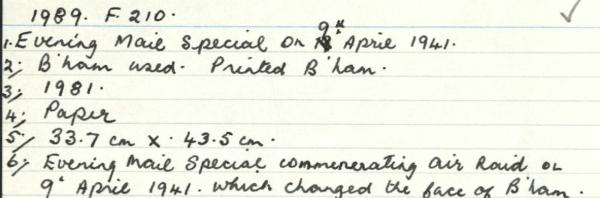 1989. F. 210.
1. Evening Mail Special on 9th April 1941.
2. B'ham used. Printed B'ham.
3. 1981.
4. Paper
5. 33.7 cm x. 43.5 cm.
6. Evening Mail Special commenerating Air Raid on
9th April 1941. which changed the face of B'ham.